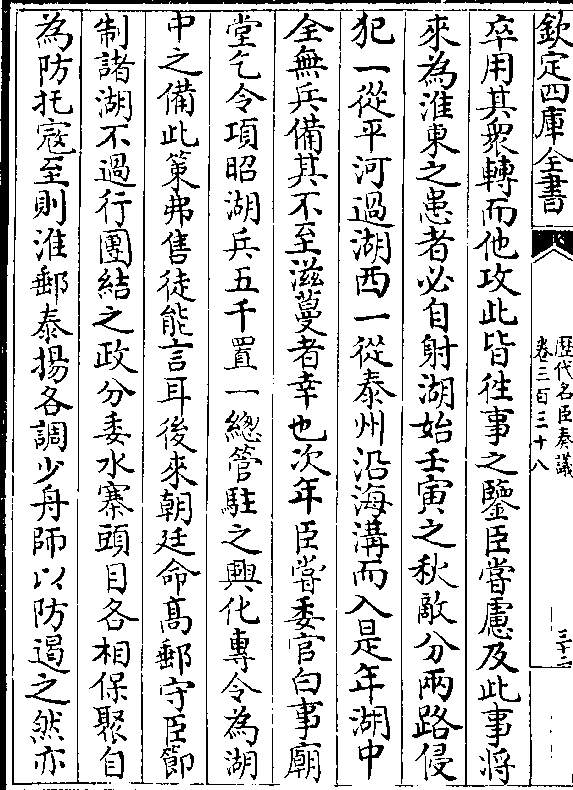 欽定四庫全書
歷代名臣奏議
卷三百三十八
三十二
卒用其衆轉而他攻此皆往事之鑒臣嘗慮及此事將
來為淮東之患者必自射湖始壬寅之秋敵分兩路侵
犯一從平河過湖西一從泰州沿海溝而入是年湖中
全無兵備其不至滋蔓者幸也次年臣嘗委官白事廟
堂乞令項昭湖兵五千置一總管駐之興化專令為湖
中之備此策弗售徒能言耳後來朝廷命髙郵守臣節
制諸湖不過行團結之政分委水寨頭目各相保聚自
為防托寇至則淮郵泰揚各調少舟師以防遏之然亦